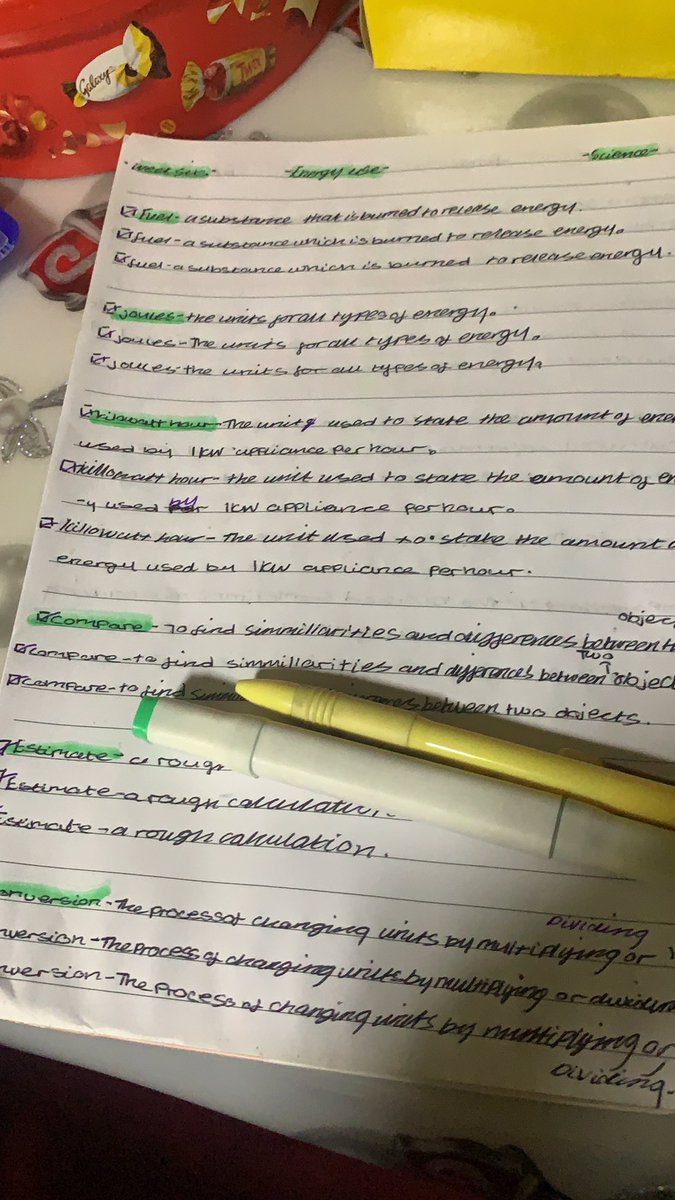 Galaxy
Twix
week six - Energy use - - Science -
fuel - a substance that is burned to release energy.
fuel - a substance which is burned to release energy.
fuel - a substance which is burned to release energy.
joules - the units for all types of energy.
joules - The units for all types of energy.
joules - the units for all types of energy.
kilowatt hour - The unit used to state the amount of ener
used by 1KW appliance per hour.
killowatt hour - the unit used to state the amount of en
-y used by 1KW appliance per hour.
killowatt hour - The unit used to state the amount o
energy used by 1KW appliance per hour.
objec
Compare - To find simmiliarities and differences between t
two
compare - to find simmiliarities and differences between objec
compare - to find between two objects.
Estimate - a rough
Estimate - a rough calculation.
Esimate - a rough calculation.
Dividing
onversion - The process of changing units by multiplying or
nversion - The process of changing units by multiplying or dividin
nversion - The process of changing units by multiplying or
Dividing -